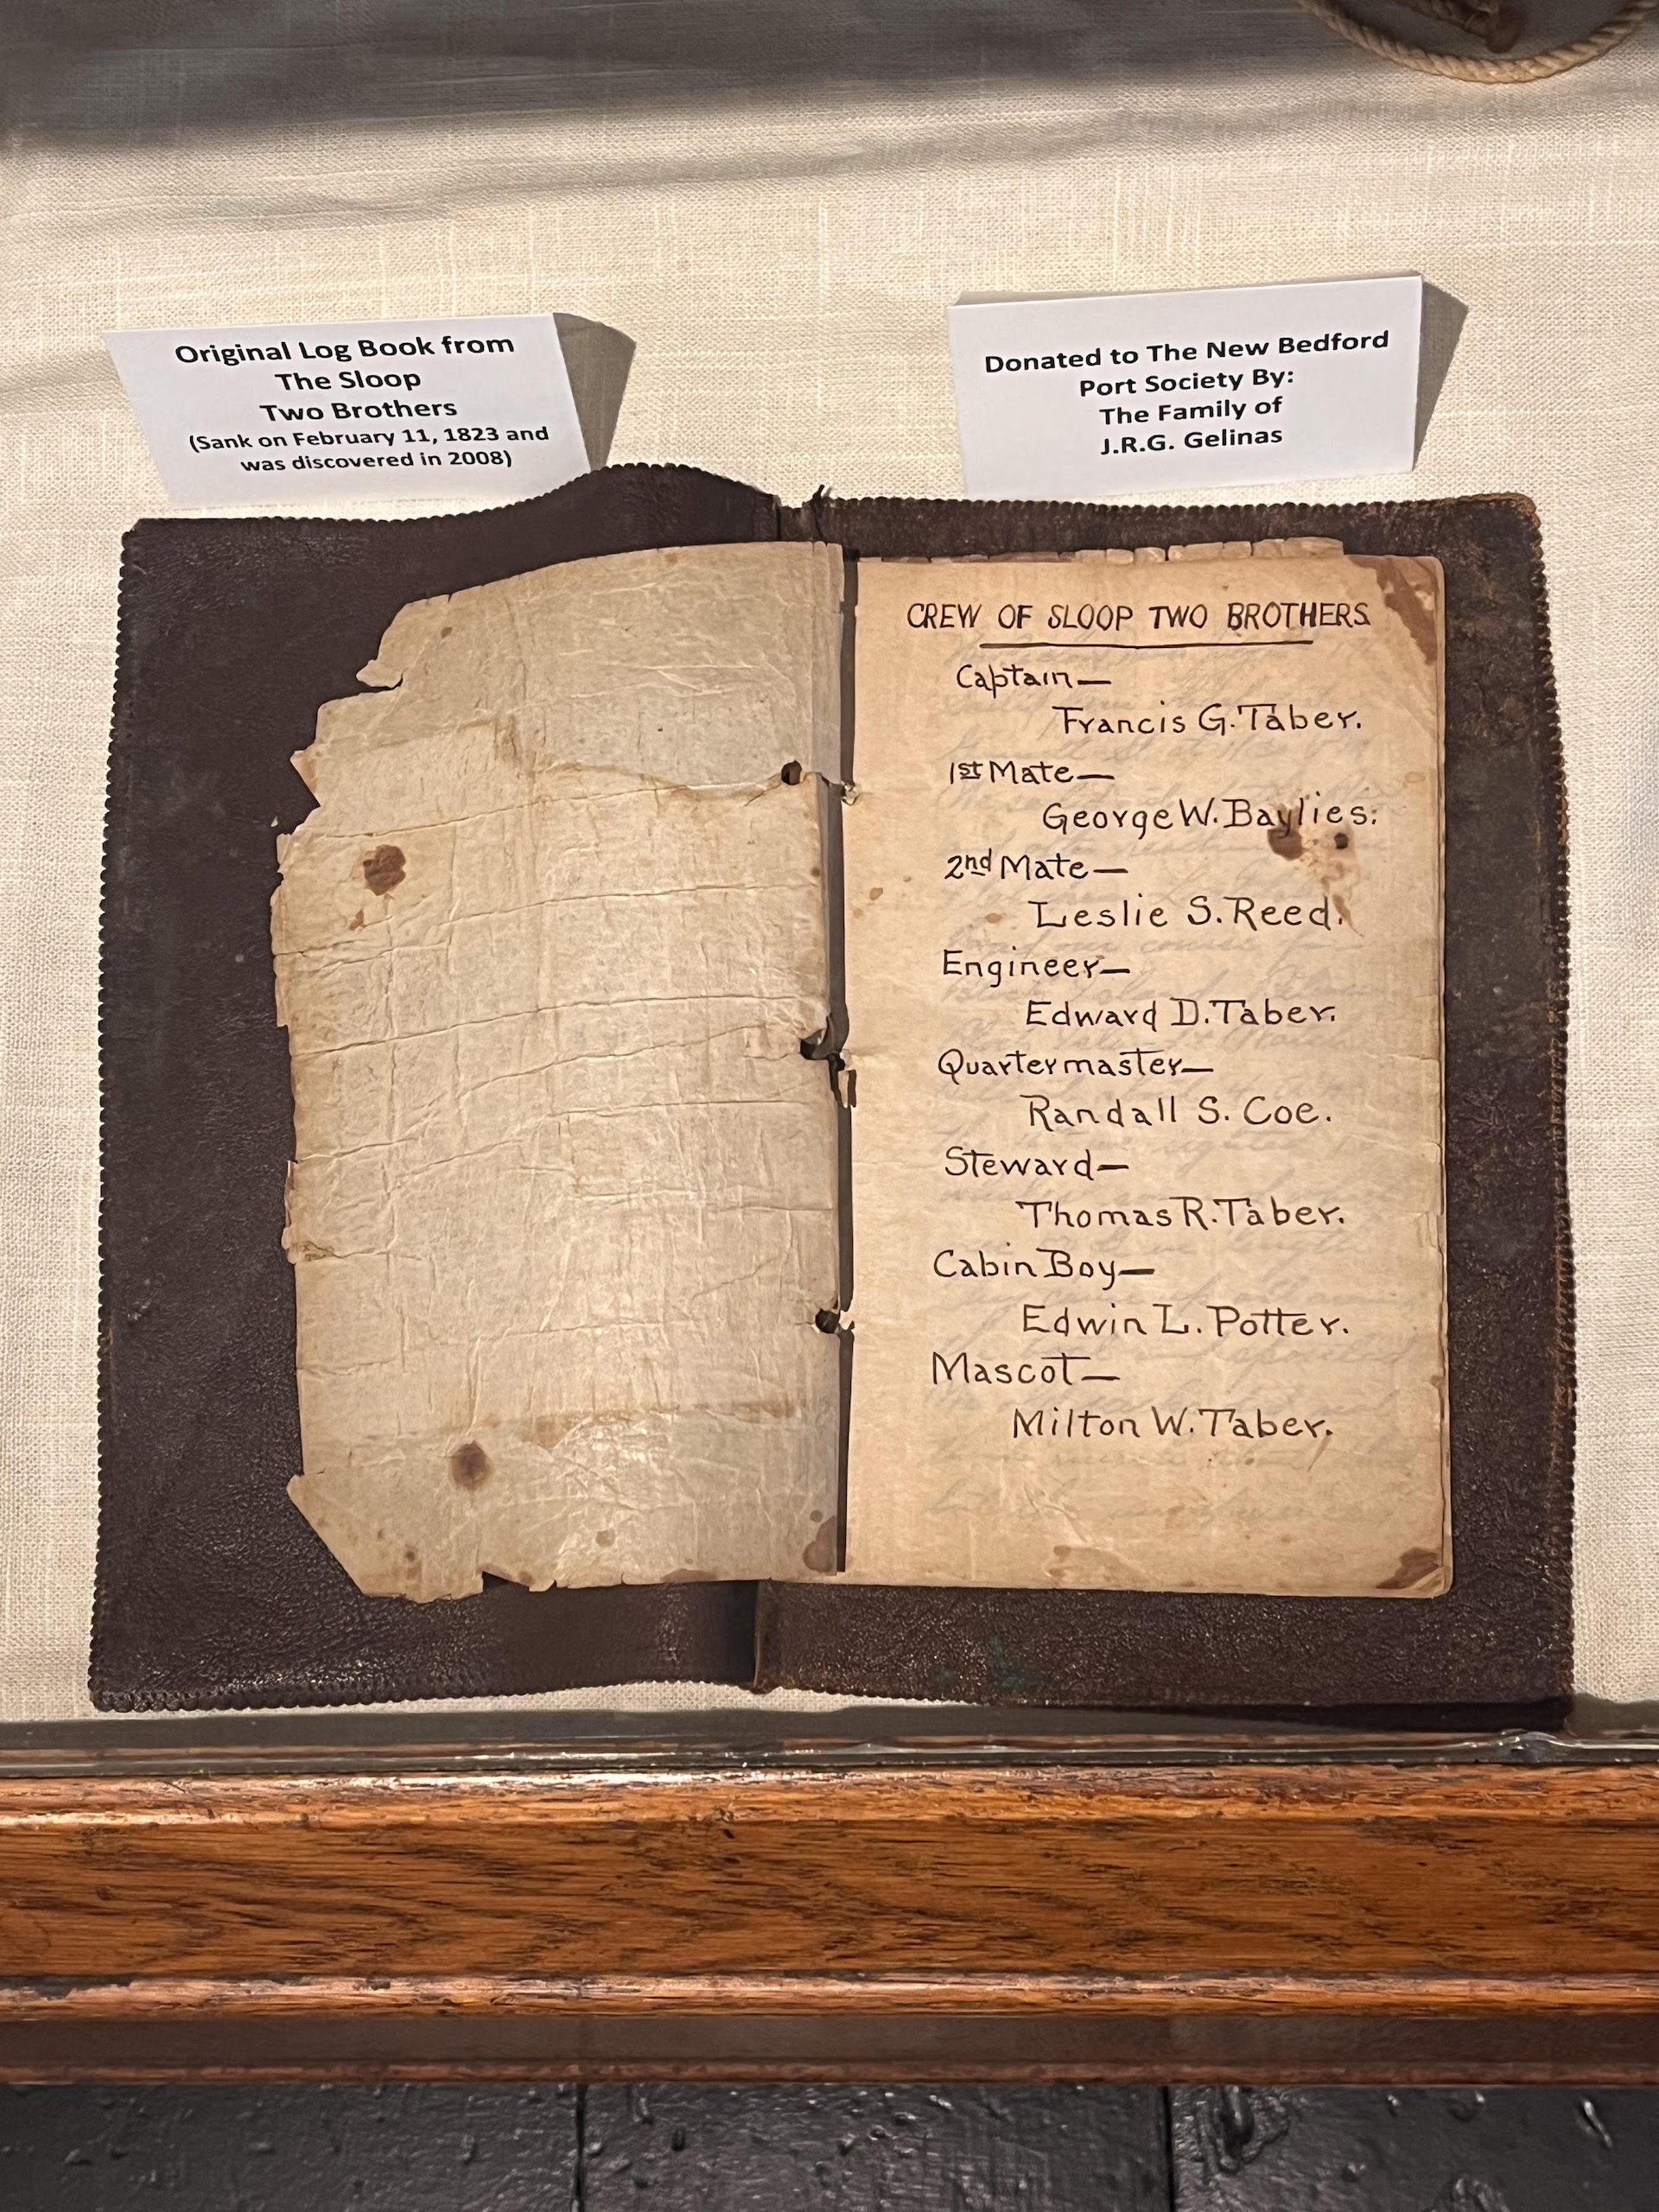 Original Log Book from
The Sloop
Two Brothers
(Sank on February 11, 1823 and
was discovered in 2008)
Donated to The New Bedford
Port Society By:
The Family of
J.R.G. Gelinas
CREW OF SLOOP TWO BROTHERS
Captain—
Francis G. Taber.
1st Mate—
George W. Baylies.
2nd Mate—
Leslie S. Reed.
Engineer—
Edward D. Taber.
Quartermaster—
Randall S. Coe.
Steward—
Thomas R. Taber.
Cabin Boy—
Edwin L. Potter.
Mascot—
Milton W. Taber.